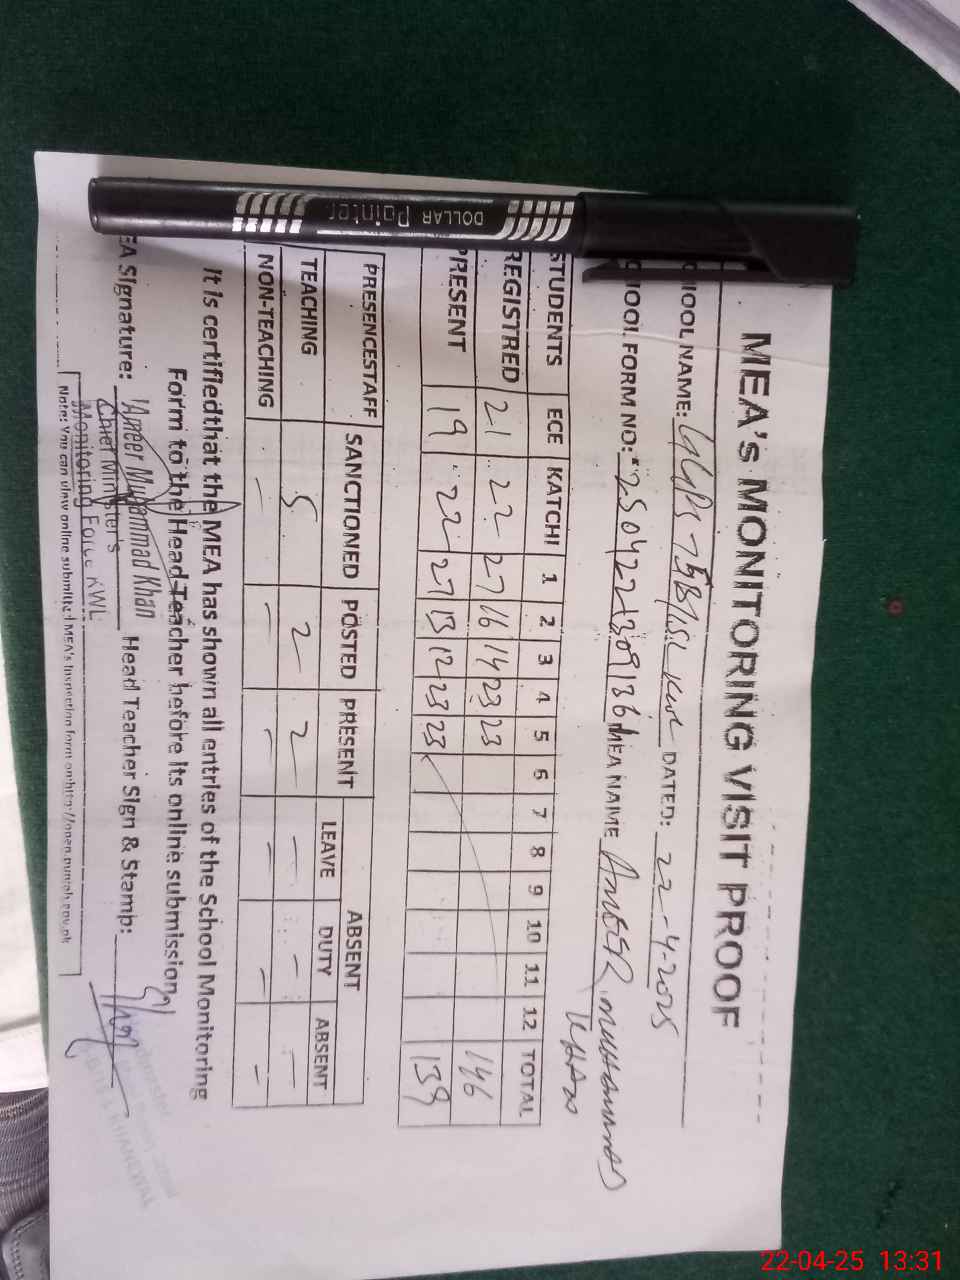 MEA's MONITORING VISIT PROOF
HOOL NAME: DATED: 22-4-2025
OOL FORM NO: MEA NAME AMEER MUHAMMAD
KHAN
STUDENTS ECE KATCHI 1 2 3 4 5 6 7 8 9 10 11 12 TOTAL
REGISTRED 21 22 27 16 14 23 23 146
PRESENT 19 22 27 13 12 23 23 139
PRESENCESTAFF SANCTIONED POSTED PRESENT ABSENT
LEAVE DUTY ABSENT
TEACHING 5 2 2 - - -
NON-TEACHING - - - - - -
It is certifiedthat the MEA has shown all entries of the School Monitoring
Form to the Head Teacher before its online submission
EA Signature: Head Teacher Sign & Stamp:
Ameer Muhammad Khan
Chief Minister's
Monitoring Force KWL
Note: You can view online submitted MEA's inspection form on:http://open.punjab.gov.pk
KHANEWAL
DOLLAR Pointer
22-04-25 13:31